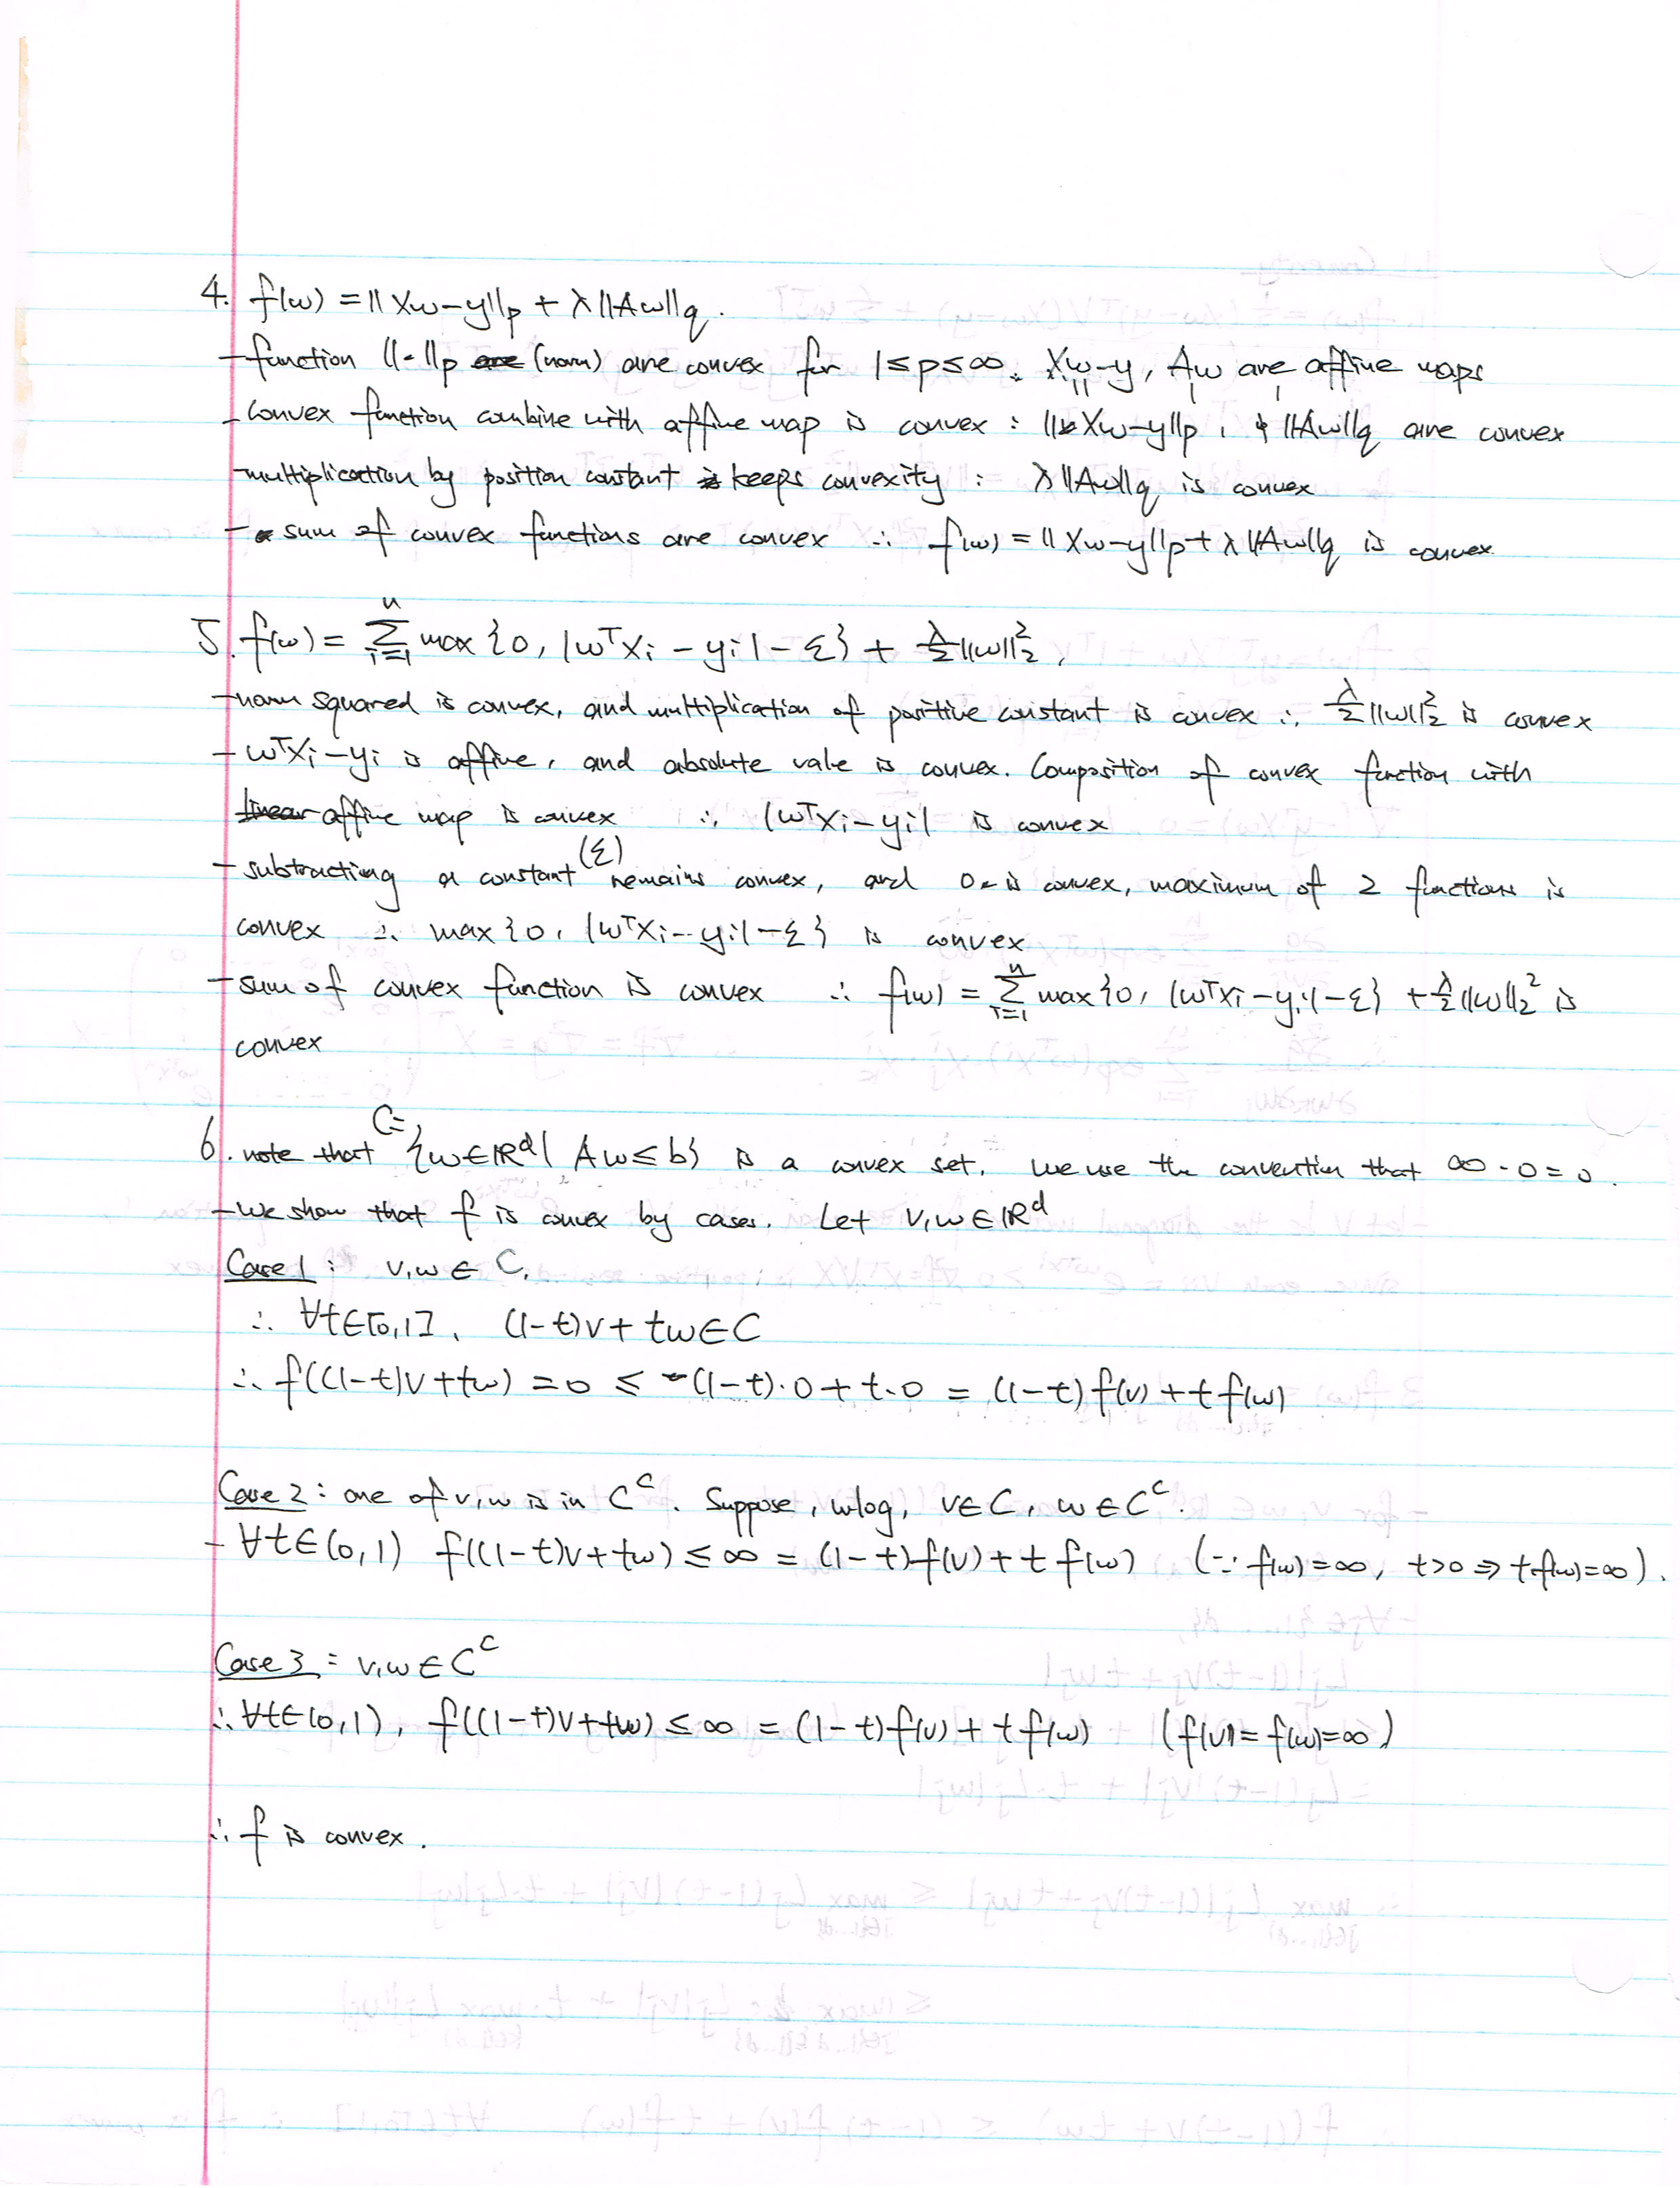 4. f(w) = ||Xw-y||p + λ||Aw||q.
- function ||·||p are (norm) are convex for 1≤p≤∞. Xw-y, Aw are affine maps
- convex function combine with affine map is convex : ||Xw-y||p, & ||Aw||q are convex
- multiplication by position constant is keeps convexity : λ||Aw||q is convex
- sum of convex functions are convex ∴ f(w) = ||Xw-y||p + λ||Aw||q is convex
5. f(w) = Σ_{i=1}^{n} max{0, |wᵀxi - yi| - ε} + λ/2||w||₂²,
- norm squared is convex, and multiplication of positive constant is convex ∴ λ/2||w||₂² is convex
- wᵀxi-yi is affine, and absolute value is convex. Composition of convex function with
linear affine map is convex ∴ |wᵀxi-yi| is convex
- subtracting a constant (ε) remains convex, and 0 is convex, maximum of 2 functions is
convex ∴ max{0, |wᵀxi-yi|-ε} is convex
- sum of convex function is convex ∴ f(w) = Σ_{i=1}^{n} max{0, |wᵀxi-yi|-ε} + λ/2||w||₂² is
convex
6. note that C={w∈ℝᵈ| Aw≤b} is a convex set. we use the convention that ∞·0=0.
- we show that f is convex by cases. Let v,w∈ℝᵈ
Case 1: v,w∈C,
∴ ∀t∈[0,1], (1-t)v+tw∈C
∴ f((1-t)v+tw) = 0 ≤ (1-t)·0+t·0 = (1-t)f(v)+tf(w)
Case 2: one of v,w is in Cᶜ. Suppose, wlog, v∈C, w∈Cᶜ.
- ∀t∈(0,1) f((1-t)v+tw) ≤ ∞ = (1-t)f(v)+tf(w) (∵ f(w)=∞, t>0 ⇒ t·f(w)=∞).
Case 3: v,w∈Cᶜ
∴ ∀t∈(0,1), f((1-t)v+tw) ≤ ∞ = (1-t)f(v)+tf(w) (f(v)=f(w)=∞)
∴ f is convex.